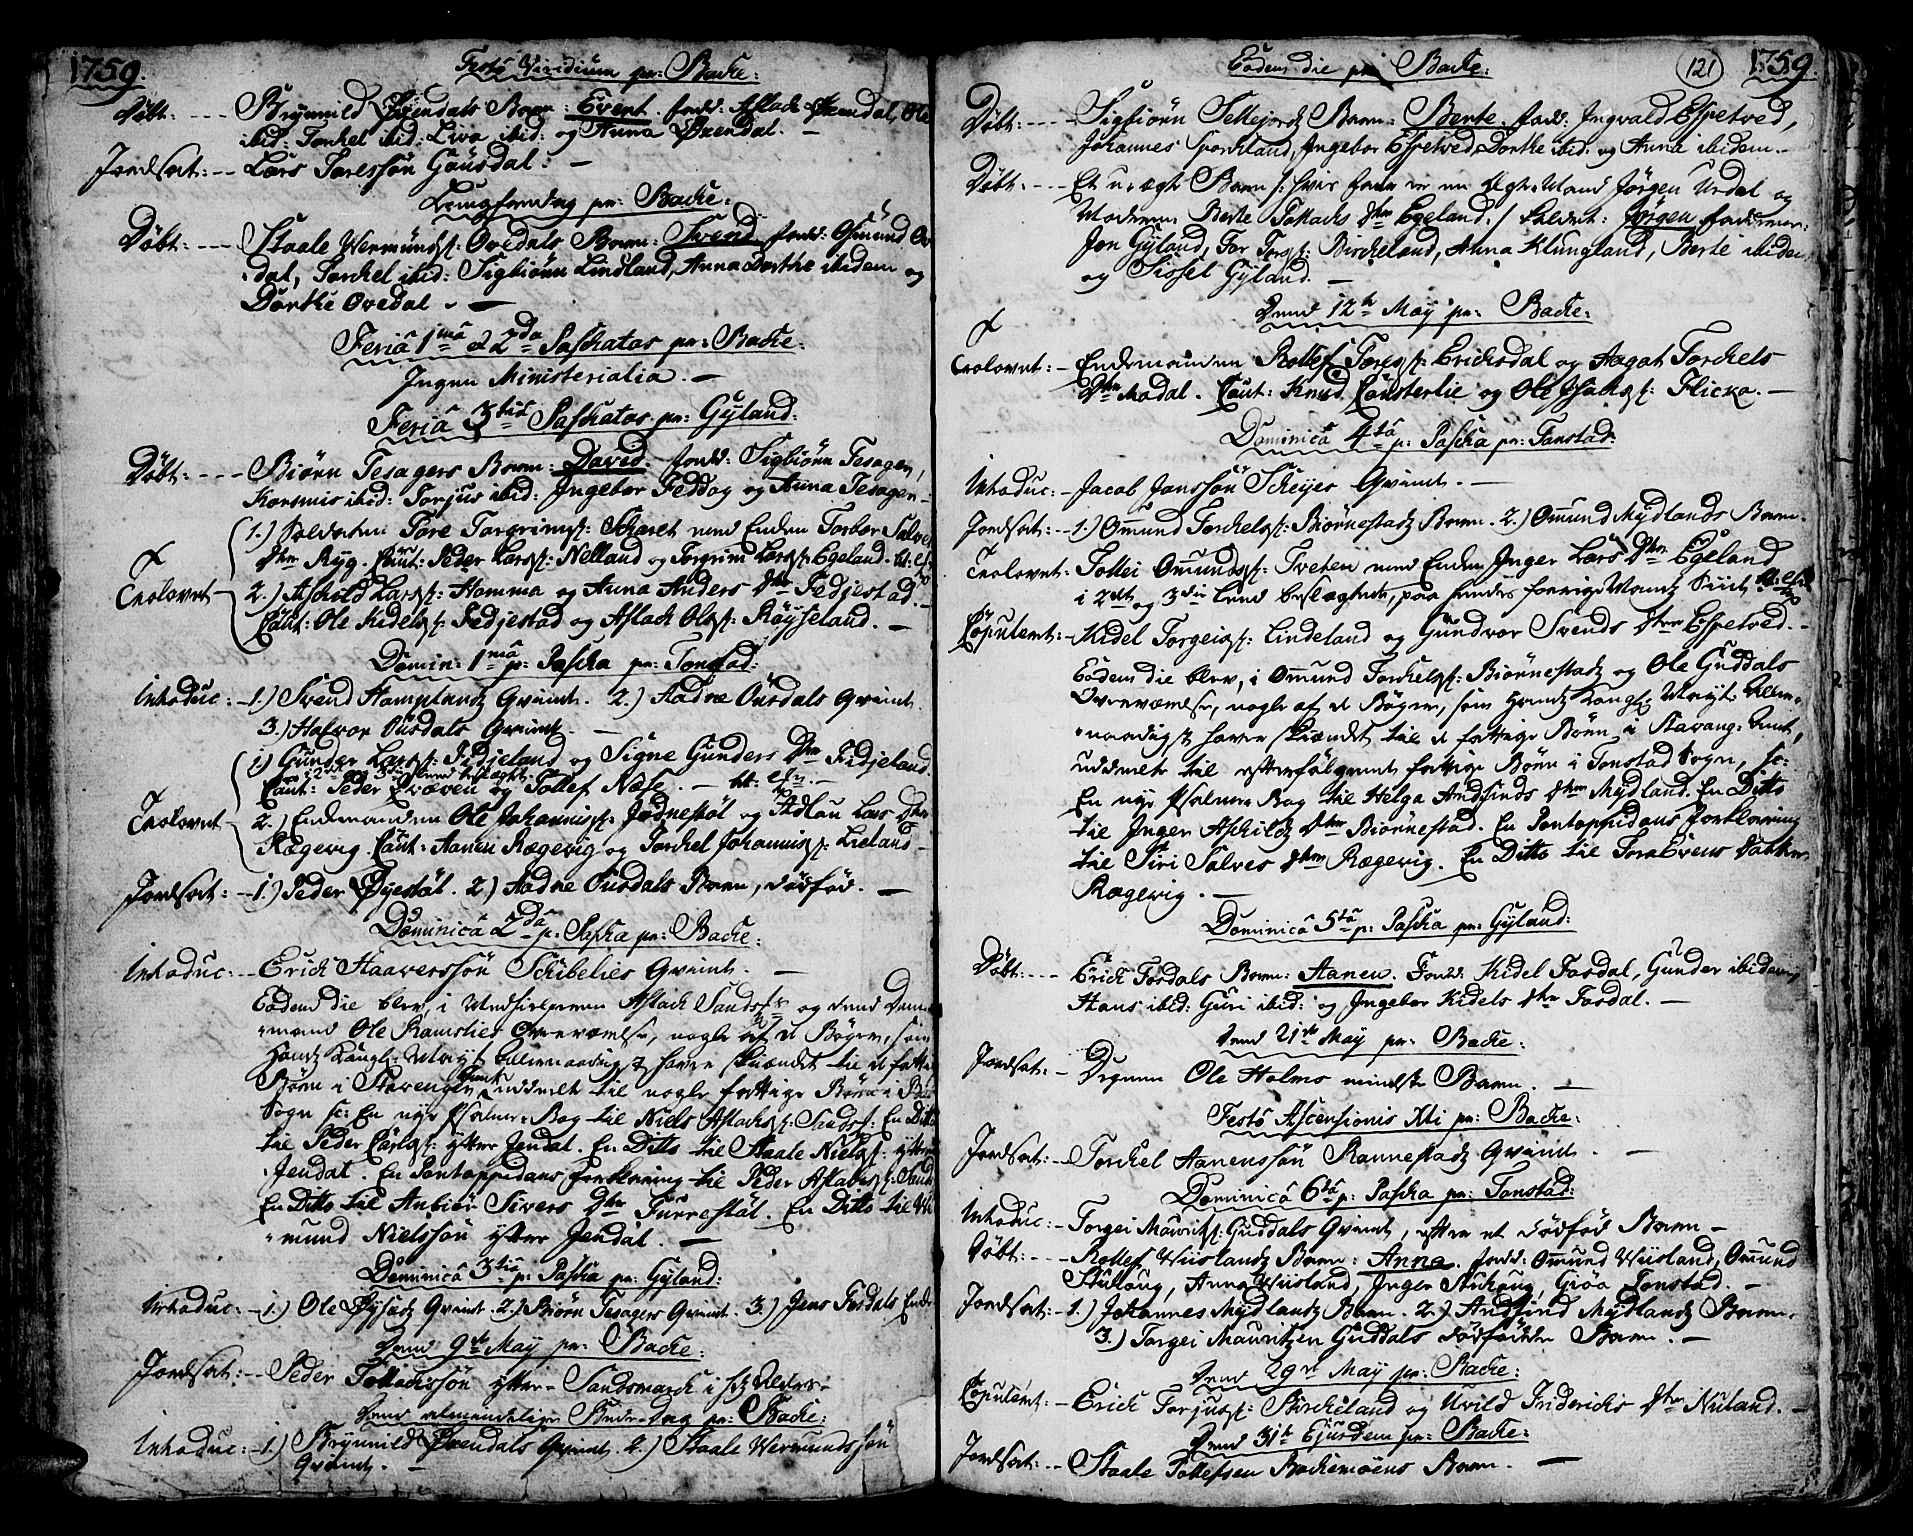 1759.
Festo Viridium pr: Backe:
Døbt: --- Brynnild Øxendals Barn: Event. fadd: Aslack Øxendal, Ole
ibid: Torkel ibid: Liva ibid: og Anna Øxendal. —
Jordsat: -- Lars Taressøn Gausdal. —
Langfredag pr: Backe:
Døbt: --- Staale Wermunds: Ovedals Barn: Svend. fadd: Osmund Ove
dal, Torkel ibid: Sigbiørn Lindland, Anna Dorthe ibidem og
Dorthe Ovedal. —
Feria 1ma et 2da Paschatos pr: Backe:
Ingen Ministerialia. —
Feria 3tia Paschatos pr: Gyland:
Døbt: --- Biørn Tesagers Barn: David. fadd: Sigbiørn Tesager,
Rasmus ibid: Torjus ibid: Ingebor Feddog og Anna Tesager.
1.) Soldaten Tore Torgrims: Skaret med Enken Torbor Salves
Dtr Ryg. Caut: Peder Lars: Nelland og Torgrim Lars: Egeland.
Trolovet 2.) Aschild Lars: Homma og Anna Anders Dtr Fedjestad.
Caut: Ole Kidels: Fedjestad og Aslack Ols: Røyseland. —
Domin: 1ma p: Pascha pr: Tonstad:
Introduc: -1.) Svend Hamplands Qvinde. 2.) Aadne Ousdals Qvinde.
3.) Halvor Ousdals Qvinde. —
1.) Gunder Lars: Fidjeland og Signe Gunders Dtr Fidjeland.
Caut: Peder Qvæven og Tollef Næse. —
Trolovet 2.) Enkemanden Ole Johannis: Jødnestøl og Adlau Lars Dtr
Rægevig. Caut: Aanen Rægevig og Torkel Johannis: Lieland
Jordsat: -1.) Peder Øyestøl. 2.) Aadne Ousdals Barn, dødfød. —
Dominica 2da p: Pascha pr: Backe:
Introduc: -- Erich Haaverssøn Skibelies Qvinde. —
Eodem die blev, i Medhielperen Aslach Sands: og dend Danne
mand Ole Ramslies Overværelse, nogle af de Bøger, som
Hands Kongl: Mayst: allernaadigst haver skiendet til de fattige
Børn i Stavanger Amt, uddeelt til nogle fattige Børn i Backe
Sogn sc: En nye Psalme-Bog til Niels Aslachs: Sands: En Ditto
til Peder Carls: yttre Jendal. En Ditto til Staale Niels: yttre
Jendal. En Pontoppidans Forklaring til Peder Aslachs: Sands
En Ditto til Anbiør Sivers Dtr Furrestøl. En Ditto til We
mund Nielssøn yttre Jendal. —
Dominica 3tia p: Pascha pr: Gyland:
Introduc: -1.) Ole Øysæds Qvinde. 2.) Biørn Tesagers Qvinde. 3.) Jens Fosdals
Dend 9de May pr: Backe:
Jordsat: -- Peder Tollachssøn yttre-Sandsmarck
Dend almindelige Bede-Dag pr: Backe:
Introduc: -1.) Brynnild Øxendals Qvinde. 2.) Staale Wermundssøn
Qvinde. —
Eodem die pr: Backe:
121
1759.
Døbt: ---- Sigbiørn Tellejords Barn: Berte. fadd: Ingvald Espetved,
Johannes Sporkland, Ingebor Espetved, Dorthe ibid: og Anna ibidem. —
Døbt: ---- Et uægte Barn (: hvis fader er en ægte-Mand Jørgen Urdal og
Moderen Berte Tollachs Dtr Egeland.) kaldet: Jørgen. fadderne:
Jon Gyland, Tor Tors: Birckeland, Anna Klungland, Berte ibidem
og Sissel Gyland. —
Dend 12te May pr: Backe:
Trolovet: - Enkemanden Rollef Tores: Erichsdal og Aagat Torckels
Dtr Modal. Caut: Knud Custerlie og Ole Isachs: Flicka. —
Dominica 4ta p: Pascha pr: Tonstad:
Introduc: - Jacob Janssøn Scheyes Qvinde. —
Jordsat: -1.) Ommund Torkels: Biørnestads Barn. 2.) Ommund Mydlands Barn.
Trolovet: Tollei Ommunds: Tveten med Enken Inger Lars Dtr Egeland
i 2det og 3die Leed beslægtede, paa hendes forrige Mands Siide
Copuleret: - Kidel Torgeis: Lindeland og Gundvor Svends Dtr Espetved. -
Eodem die blev, i Ommund Torckels: Biørnestads og Ole Guddals
Overværelse, nogle af de Bøger, som Hands Kongl: Mayst: Aller-
naadigst haver skiændet til de fattige Børn i Stavang: Amt,
uddeelte til efterfølgende fattige Børn i Tonstad Sogn, sc:
En nye Psalme Bog til Helga Andfinds Dtr Mydland. En Ditto
til Inger Aschilds Dtr Biørnestad. En Pontoppidans Forklaring
til Siri Salves Dtr Rægevig. En Ditto til Tora Evens Datter
Rægevig. —
Dominica 5ta p: Pascha pr: Gyland:
Døbt: --- Erich Fosdals Barn: Aanen. Fadd: Kidel Fosdal, Gunder ibidem,
Hans ibid: Guri ibid: og Ingebor Kidels Dtr Fosdal. —
Dend 21de May pr: Backe:
Jordsat: - Degnen Ole Holms mindste Barn. —
Festo Ascensionis Xti pr: Backe:
Jordsat: - Torckel Aanenssøn Rannestads Qvinde. —
Dominica 6ta p: Pascha pr: Tonstad:
Introduc: - Torgei Maurits: Guddals Qvinde, efter et dødfød Barn —
Døbt: --- Rollef Wiislands Barn: Anna. fadd: Ommund Wiisland, Ommund
Skulaug, Anna Wiisland, Inger Skulaug, Giøa Tonstad. —
Jordsat: -1.) Johannes Mydlands Barn. 2.) Andfind Mydlands Barn.
3.) Torgei Mauritzen Guddals dødfødde Barn. —
Dend 29de May pr: Backe:
Copuleret: - Erich Torjus: Birckeland og Uvild Friderichs Dtr Nuland. —
Dend 31te Ejusdem pr: Backe:
Jordsat: -- Staale Tollefsen Backemoens Barn. —